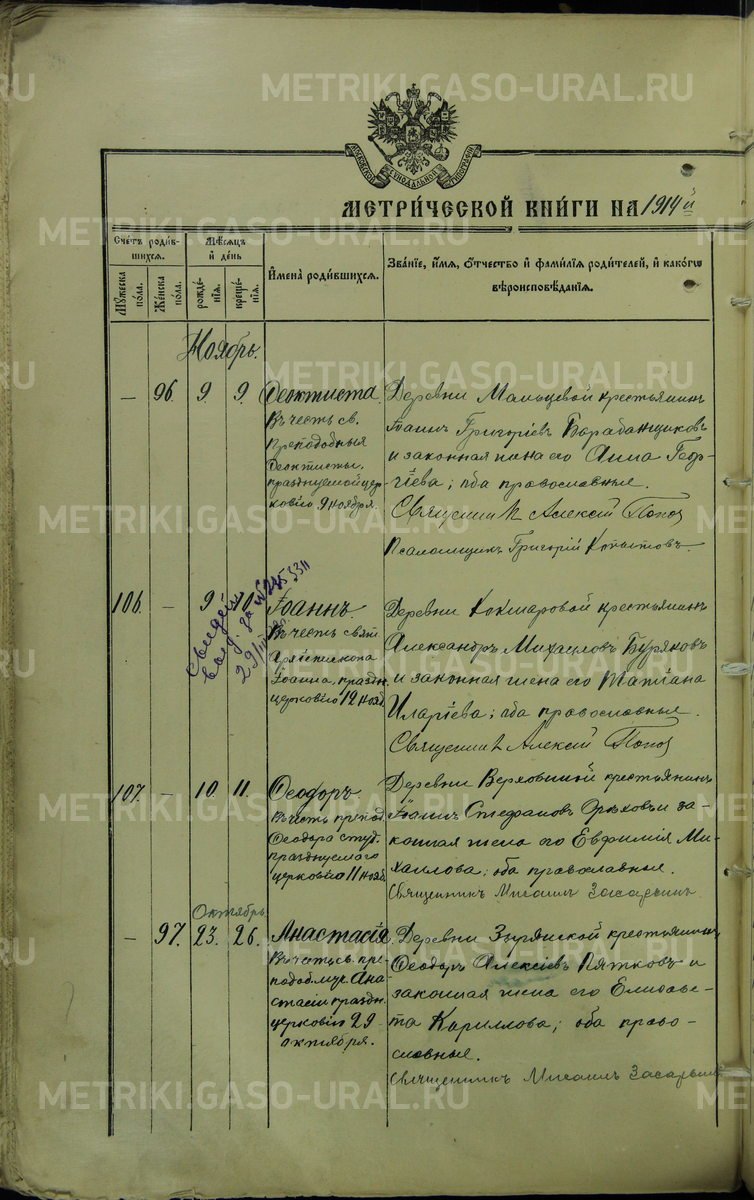 METRIKI.GASO-URAL.RU
МОСКОВСКОЙ СѴНОДАЛЬНОЙ ТИПОГРАФІИ
МЕТРИЧЕСКОЙ КНИГИ НА 1914й
Счетъ родив-
шихся.
Мѣсяцъ
и день
Имена родившихся.
Званіе, имя, отчество и фамилія родителей, и какогѡ
вѣроисповѣданія.
Мужеска пола.
Женска пола.
рожде-
нія.
креще-
нія.
Ноябрь.
— 96. 9. 9.
Ѳеоктиста.
Въ честь св.
Преподобныя
Ѳеоктисты,
празднуемой цер-
ковію 9 ноября.
Деревни Мальцевой крестьянинъ
Іоаннъ Григоріевъ Барабанщиковъ
и законная жена его Анна Геор-
гіева; оба православные.
Священникъ Алексій Поповъ
Псаломщикъ Григорій Копытовъ.
106. — 9. 10.
Свидѣт.
выд. за №
Іоаннъ.
Въ честь свят.
Архіепископа
Іоанна, праздн.
церковію 12 нояб.
Деревни Кокшаровой крестьянинъ
Александръ Михаиловъ Буряковъ
и законная жена его Татіана
Иларіева; оба православные.
Священникъ Алексій Поповъ
107. — 10. 11.
Ѳеодоръ
Въ честь препод.
Ѳеодора студ.
празднуемаго
церковію 11 нояб.
Деревни Верховиной крестьянинъ
Іоаннъ Стефановъ Орѣховъ и за-
конная жена его Евфимія Ми-
хаилова; оба православные.
Священникъ Михаилъ
Октябрь
— 97. 23. 26.
Анастасія.
Въ честь св. пре-
подоб. муч. Ана-
стасіи праздн.
церковію 29
октября.
Деревни Зырянской крестьянинъ
Ѳеодоръ Алексіевъ Пятковъ и
законная жена его Елисаве-
та Кириллова; оба право-
славные.
Священникъ Михаилъ